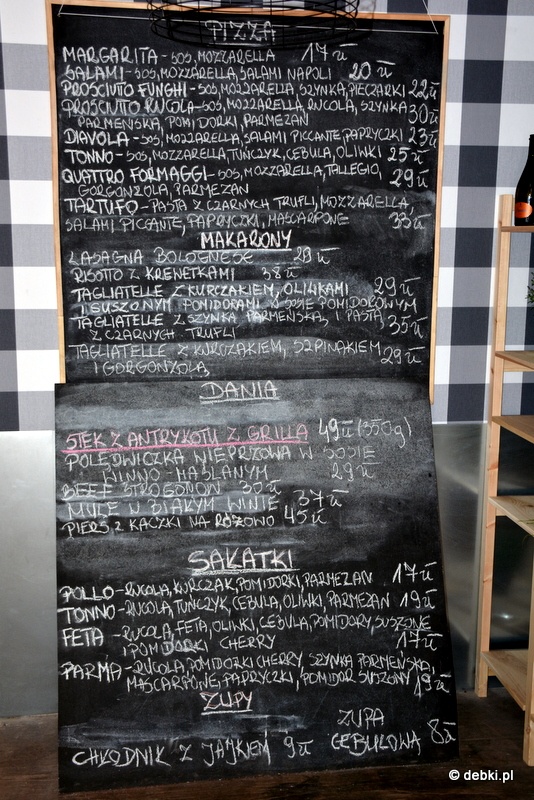 PIZZA
MARGARITA - SOS, MOZZARELLA 17 zł
SALAMI - SOS, MOZZARELLA, SALAMI NAPOLI 20 zł
PROSCIUTO FUNGHI - SOS, MOZZARELLA, SZYNKA, PIECZARKI 22 zł
PROSCIUTO RUCOLA - SOS, MOZZARELLA, RUCOLA, SZYNKA 30 zł
PARMEŃSKA, POMIDORKI, PARMEZAN
DIAVOLA - SOS, MOZZARELLA, SALAMI PICCANTE, PAPRYCZKI 23 zł
TONNO - SOS, MOZZARELLA, TUŃCZYK, CEBULA, OLIWKI 25 zł
QUATTRO FORMAGGI - SOS, MOZZARELLA, TALLEGIO, 29 zł
GORGONZOLA, PARMEZAN
TARTUFO - PASTA Z CZARNYCH TRUFLI, MOZZARELLA,
SALAMI PICCANTE, PAPRYCZKI, MASCARPONE 33 zł
MAKARONY
LASAGNA BOLOGNESE 29 zł
RISOTTO Z KREWETKAMI 38 zł
TAGLIATELLE Z KURCZAKIEM, OLIWKAMI 29 zł
I SUSZONYM POMIDORAMI W SOSIE POMIDOROWYM
TAGLIATELLE Z SZYNKĄ PARMEŃSKĄ, I PASTĄ 35 zł
Z CZARNYCH TRUFLI
TAGLIATELLE Z KURCZAKIEM, SZPINAKIEM 29 zł
I GORGONZOLĄ
DANIA
STEK Z ANTRYKOTU Z GRILLA 49 zł (350g)
POLĘDWICZKA WIEPRZOWA W SOSIE
WINNO MAŚLANYM 29 zł
BEEF STROGONOW 30 zł
MULE W BIAŁYM WINIE 37 zł
PIERŚ Z KACZKI NA RÓŻOWO 45 zł
SAŁATKI
POLLO - RUCOLA, KURCZAK, POMIDORKI, PARMEZAN 17 zł
TONNO - RUCOLA, TUŃCZYK, CEBULA, OLIWKI, PARMEZAN 19 zł
FETA - RUCOLA, FETA, OLIWKI, CEBULA, POMIDORY, SUSZONE
I POMIDORKI CHERRY 17 zł
PARMA - RUCOLA, POMIDORKI CHERRY, SZYNKA PARMEŃSKA,
MASCARPONE, PAPRYCZKI, POMIDOR SUSZONY 19 zł
ZUPY
CHŁODNIK Z JAJKIEM 9 zł
ZUPA
CEBULOWA 8 zł
© debki.pl